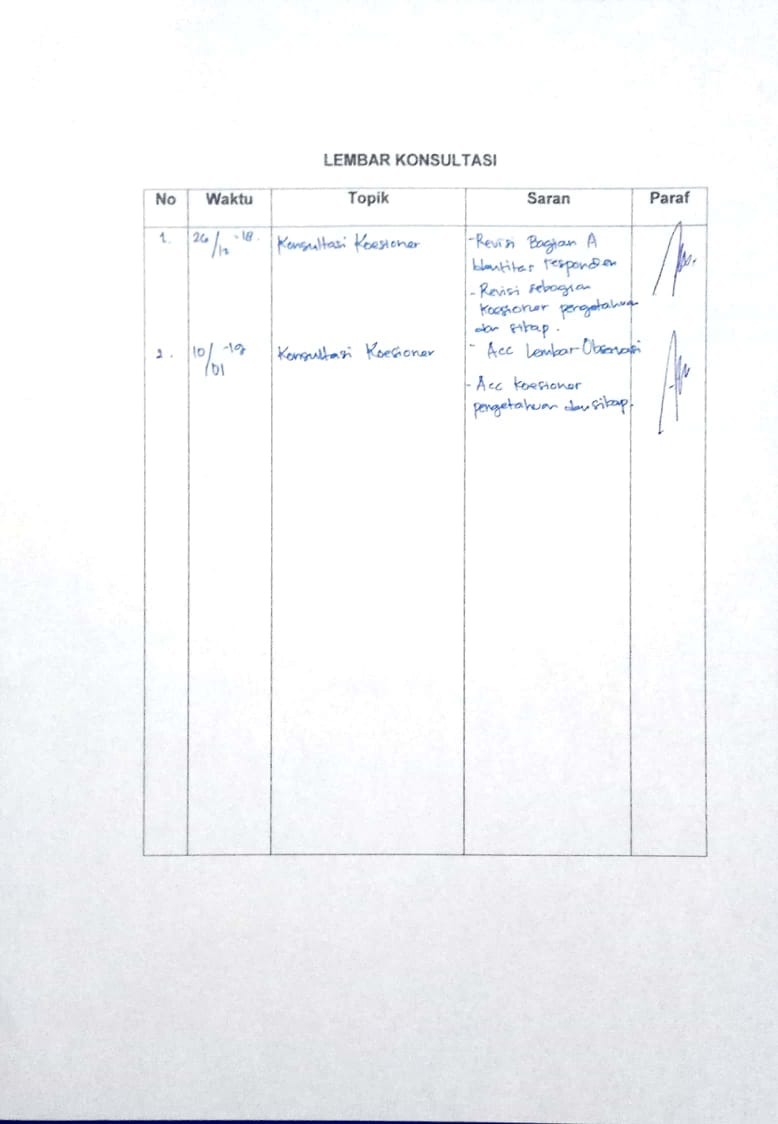 LEMBAR KONSULTASI
No Waktu Topik Saran Paraf
1. 26/12 -18. Konsultasi Koesioner -Revisi Bagian A
Identitas responden
- Revisi sebagian
Koesioner pengetahuan
dan sikap.
2. 10/01 -19 Konsultasi Koesioner - Acc Lembar Observasi
- Acc Koesioner
pengetahuan dan sikap.